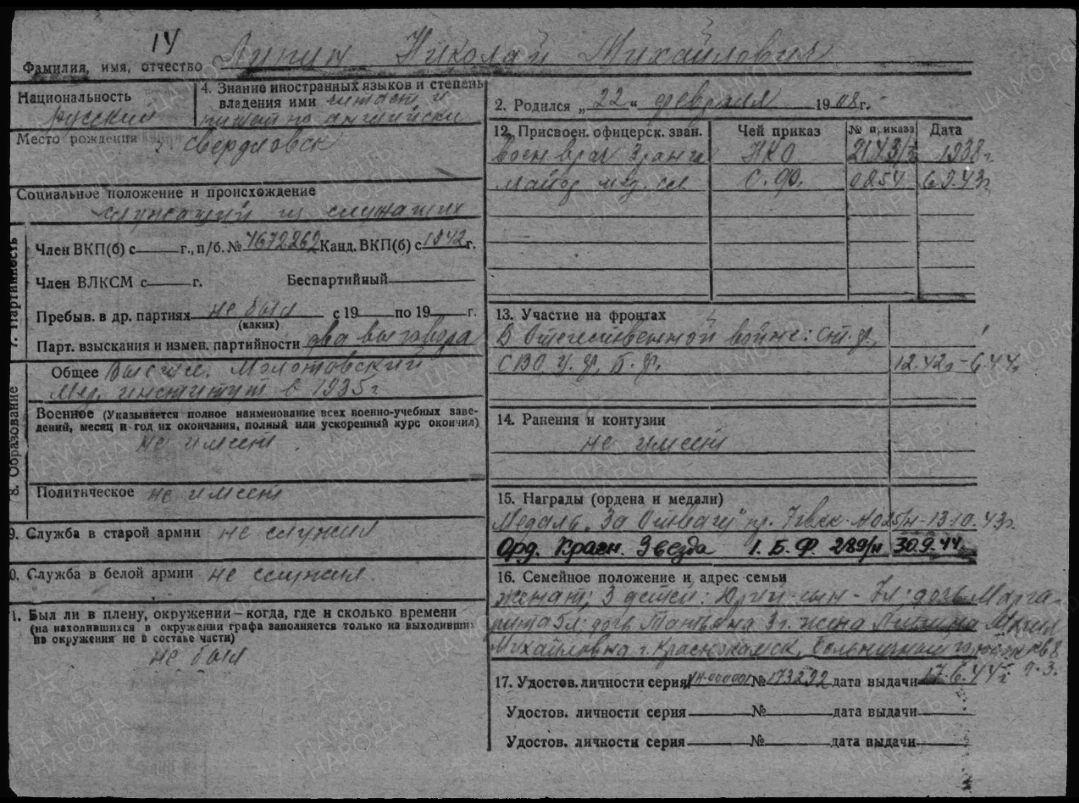 14
Фамилия, имя, отчество Липин Николай Михайлович
Национальность русский
4. Знание иностранных языков и степень владения ими читает и
пишет по английски
Место рождения г. Свердловск
Социальное положение и происхождение
служащий из служащих
7. Партийность
Член ВКП(б) с г., п/б. № 7672262 Канд. ВКП(б) с 1942 г.
Член ВЛКСМ с г. Беспартийный
Пребыв. в др. партиях не был с 19 по 19 г.
(каких)
Парт. взыскания и измен. партийности два выговора
8. Образование
Общее Высшее. Молотовский
Мед. институт в 1935г
Военное (Указывается полное наименование всех военно-учебных заве-
дений, месяц и год их окончания, полный или ускоренный курс окончил)
не имеет
Политическое не имеет
9. Служба в старой армии не служил
0. Служба в белой армии не служил.
1. Был ли в плену, окружении—когда, где и сколько времени
(на находившихся в окружении графа заполняется только на выходивших
из окружения не в составе части)
не был
2. Родился „22“ февраля 1908 г.
12. Присвоен. офицерск. зван. Чей приказ № приказа Дата
Военврач 3 ранга НКО 1938г
майор мед. сл С. Ф. 0254 6.9.43г
13. Участие на фронтах
В Отечественной войне: Ст. ф.,
СЗФ У. ф, Б. ф. 12.42г-6.44г
14. Ранения и контузии
не имеет
15. Награды (ордена и медали)
Медаль „За Отвагу" пр. 13.10.43г.
Орд. Красн. Звезда 1. Б. Ф. 289/н 30.9.44.
16. Семейное положение и адрес семьи
женат; 3 детей: Юрий-сын - 7л; дочь Марга-
рита 5л; дочь Татьяна 3г. жена Липина Мария
Михайловна г. Краснокамск, Больничный
17. Удостов. личности серия № 173292 дата выдачи 17.6.44г
Удостов. личности серия № дата выдачи
Удостов. личности серия № дата выдачи
ПАМЯТЬ НАРОДА
ЦАМО.РФ